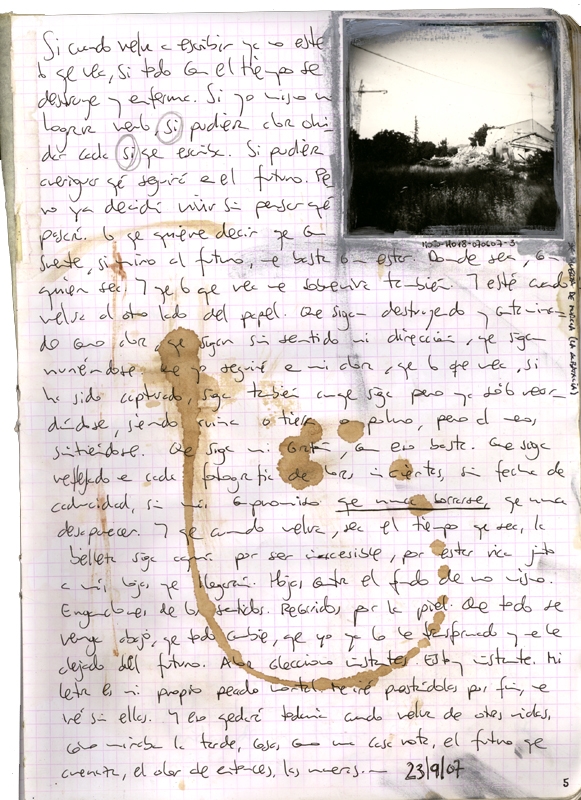 Si cuando vuelva a escribir ya no esté
lo que vea, si todo con el tiempo se
destruye y enferma. Si yo mismo no
lograra verlo, si pudiera ahora
dar cada si que escribo. Si pudiera
averiguar qué seguirá en el futuro. Pe
ro ya decidí vivir sin pensar qué
pasará. lo que quiere decir que con
suerte, si miro al futuro, me basta con estar. Donde sea, con
quien sea. Y que lo que vea me sobreviva también. Y esté cuando
vuelva al otro lado del papel. Que sigan destruyendo y
do como ahora, que sigan sin sentido ni dirección, que sigan
muriéndose. Que yo seguiré en mi ahora, que lo que vea, si
ha sido capturado, siga también aunque siga pero ya sólo
dándose, siendo ruina o tierra o polvo, pero al menos,
sintiéndose. Que siga mi que eso basta. Que siga
reflejado en cada fotografía de horas inciertas, sin fecha de
caducidad, sin más compromiso que nunca borrarse, que nunca
desaparecer. Y que cuando vuelva, sea el tiempo que sea, la
belleza siga aquí por ser inaccesible, por estar viva junto
a mis hojas, que llegarán. Hojas contra el fondo de uno mismo.
de los sentidos. Recorridos por la piel. Que todo se
venga abajo, que todo cambie, que yo ya lo he transformado y me he
alejado del futuro. Ahora colecciono instantes. Estoy instante. Mi
letra es mi propio pecado mortal. Me iré prestándolas por fin, me
iré sin ellas. Y eso quedará todavía cuando vuelva de otras vidas,
cómo miraba la tarde, cosas, como una casa rota, el futuro que
el olor de entonces, las nuevas.
23/9/07
5